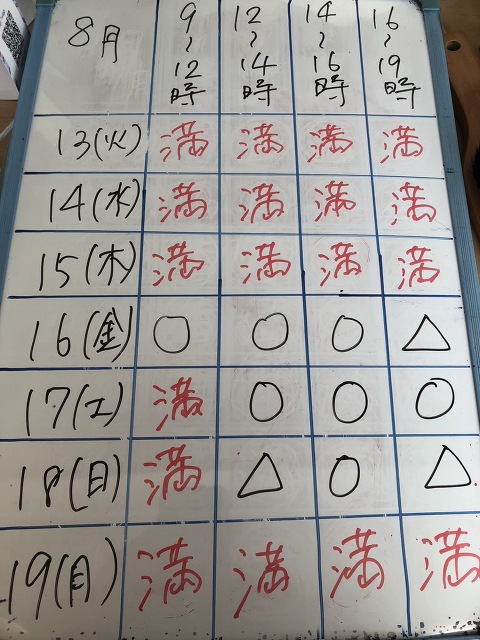 8月 9~12時 12~14時 14~16時 16~19時
13(火) 満 満 満 満
14(水) 満 満 満 満
15(木) 満 満 満 満
16(金) ○ ○ ○ △
17(土) 満 ○ ○ ○
18(日) 満 △ ○ △
19(月) 満 満 満 満